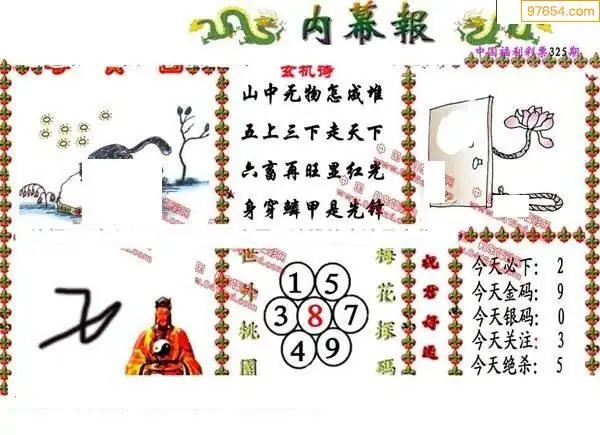 97654.com
内幕報
中国福利彩票325期
玄机诗
山中无物怎成堆
五上三下走天下
六畜再旺显红光
身穿鳞甲是先锋
世外桃園
1 5
3 8 7
4 9
梅花探碼
祝君好运
今天必下: 2
今天金码: 9
今天银码: 0
今天关注: 3
今天绝杀: 5